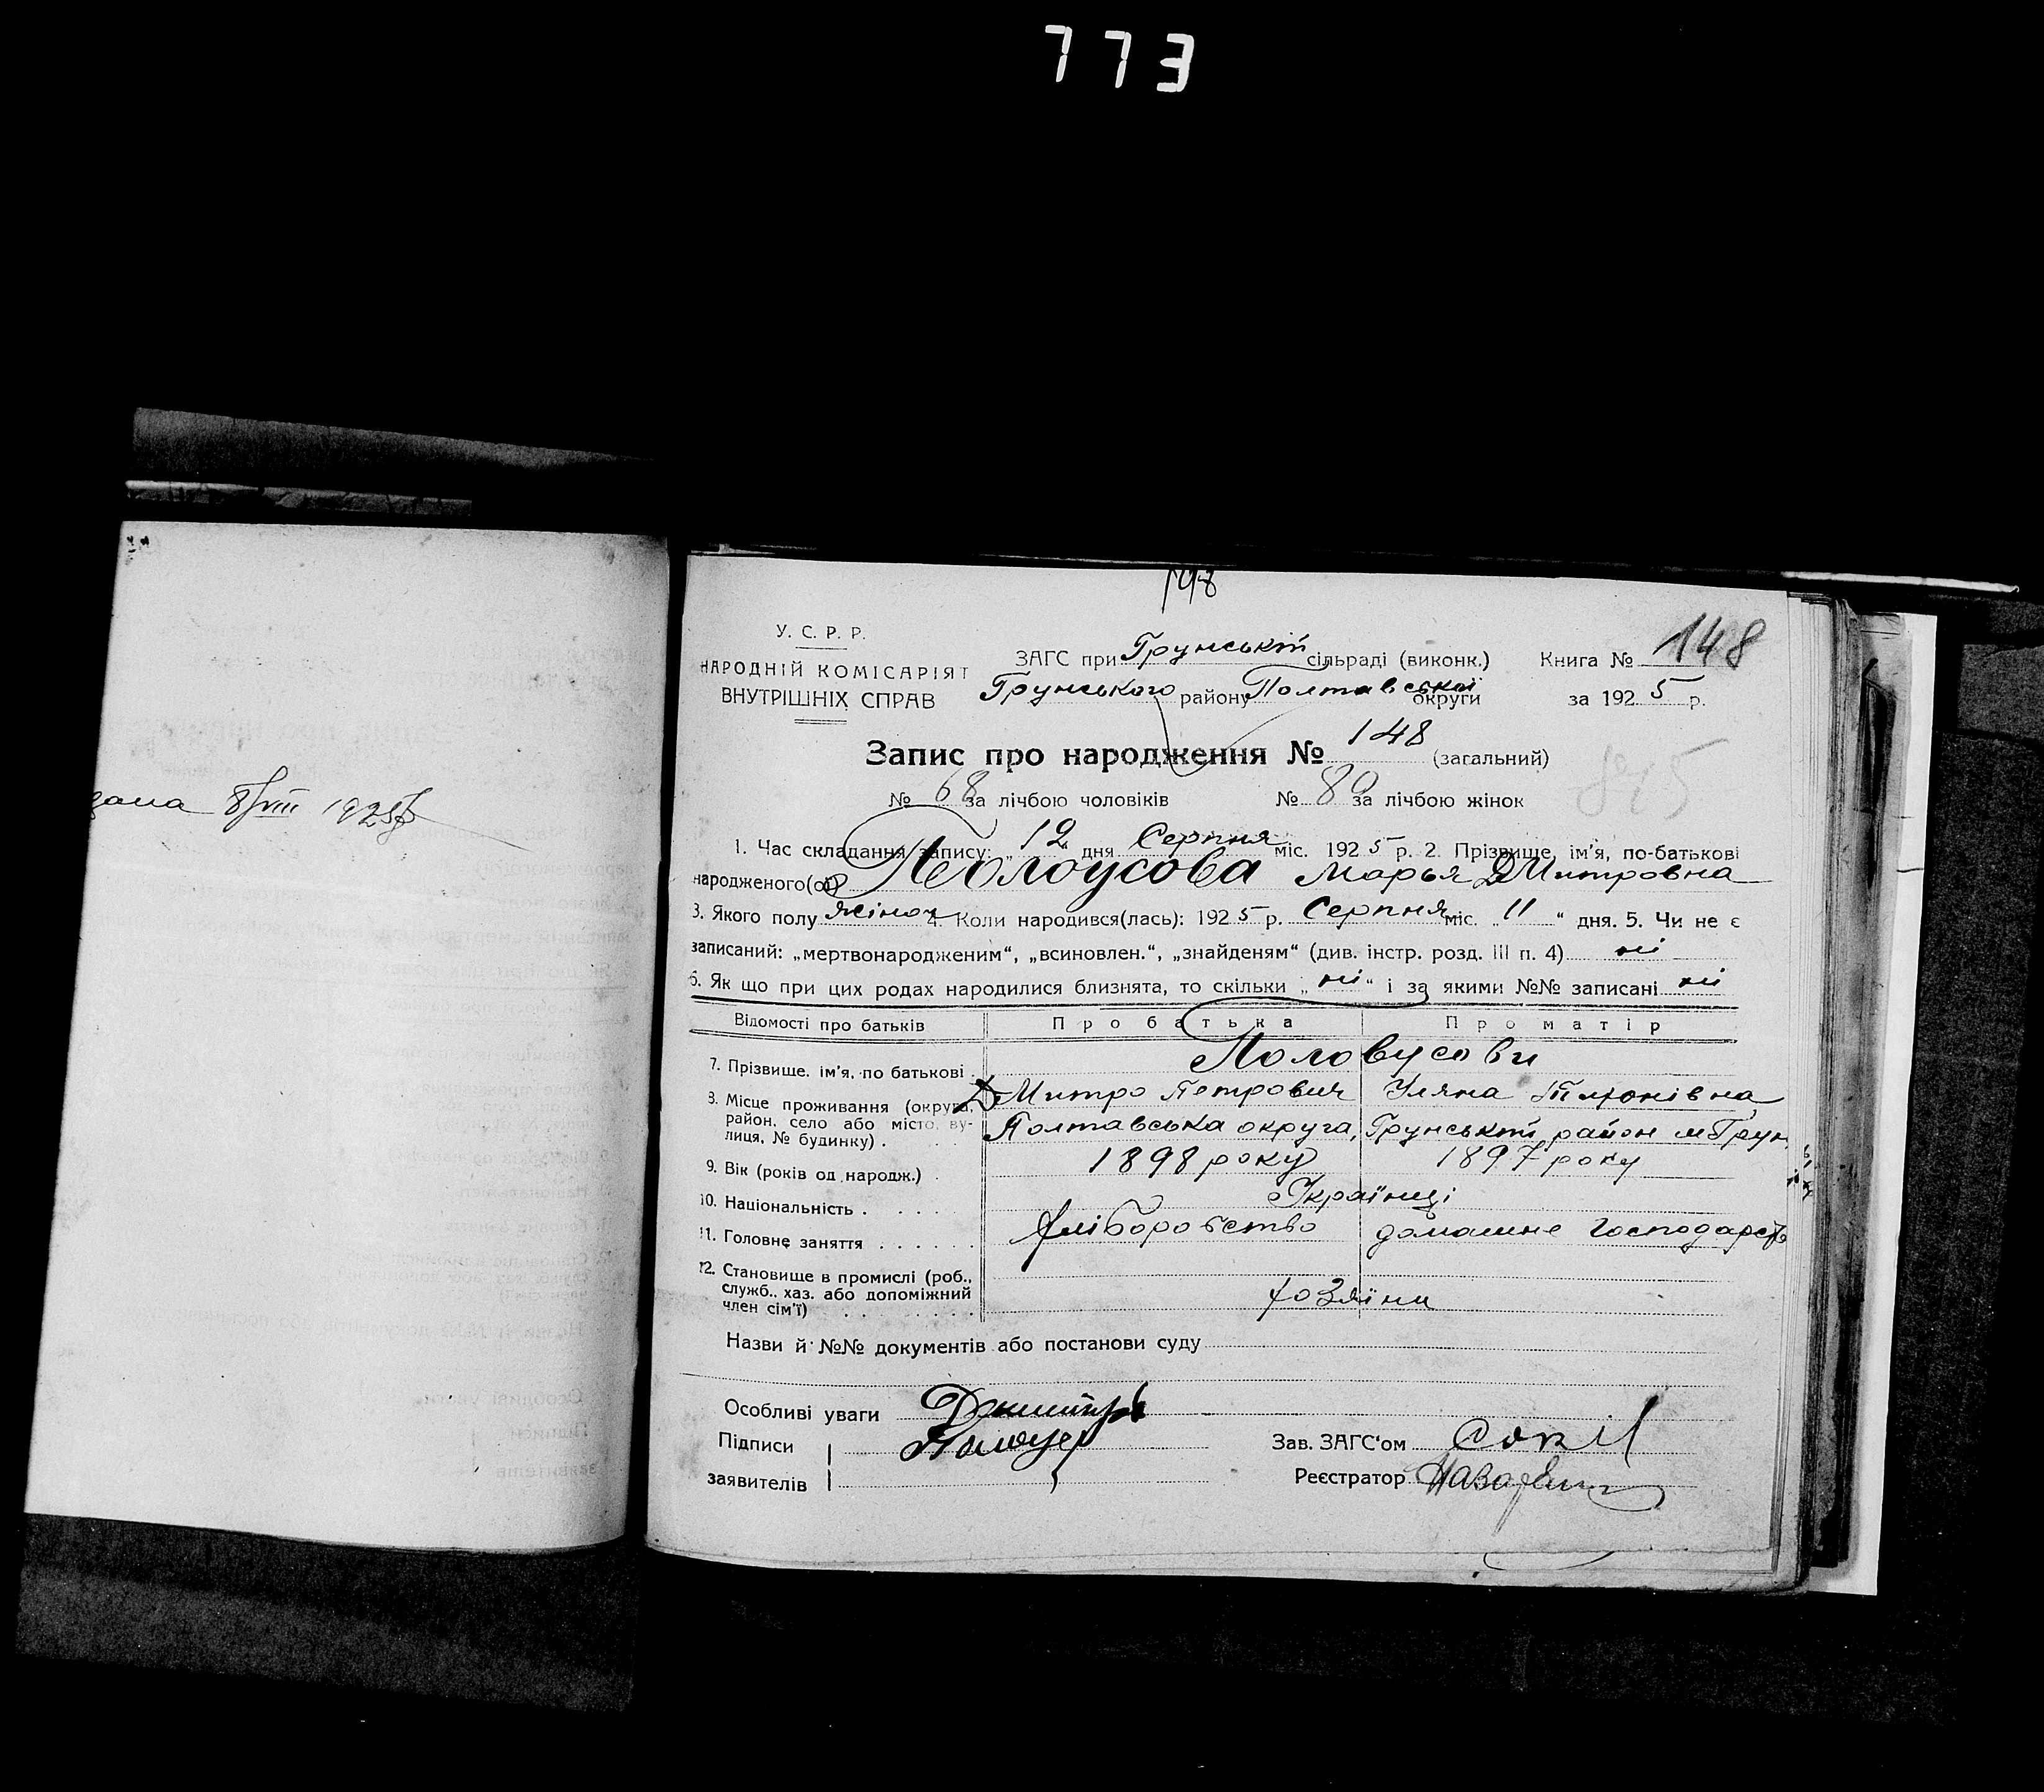 773
8/VIII 1925
148
У. С. Р. Р.
НАРОДНІЙ КОМІСАРІЯТ
ВНУТРІШНІХ СПРАВ
ЗАГС при Грунській сільраді (виконк.) Книга № 148
Грунського району Полтавської округи за 1925 р.
Запис про народження № 148 (загальний)
№ 68 за лічбою чоловіків № 80 за лічбою жінок
1. Час складання запису: „12“ дня Серпня міс. 1925 р. 2. Прізвище, ім'я, по-батькові
народженого(ої) Марья Дмитровна
3. Якого полу жіноч 4. Коли народився(лась): 1925 р. Серпня міс. „11“ дня. 5. Чи не є
записаний: „мертвонародженим“, „всиновлен.“, „знайденям“ (див. інстр. розд. III п. 4) ні
6. Як що при цих родах народилися близнята, то скільки „ні“ і за якими №№ записані ні
Відомості про батьків Про батька Про матір
7. Прізвище, ім'я, по батькові
Дмитро Петрович Уляна
8. Місце проживання (округа, район, село або місто, ву-
лиця, № будинку) . Полтавська округа, Грунський район м Грун
9. Вік (років од народж.) . 1898 року 1897 року
10. Національність . . . . . Українці
11. Головне заняття . . . . . . Хліборобство домашне господарство
12. Становище в промислі (роб.,
служб., хаз. або допоміжний
член сім'ї) . . . . . . . . хозяїни
Назви й №№ документів або постанови суду
Особливі уваги
Підписи
заявителів
Зав. ЗАГС'ом Сокіл
Реєстратор